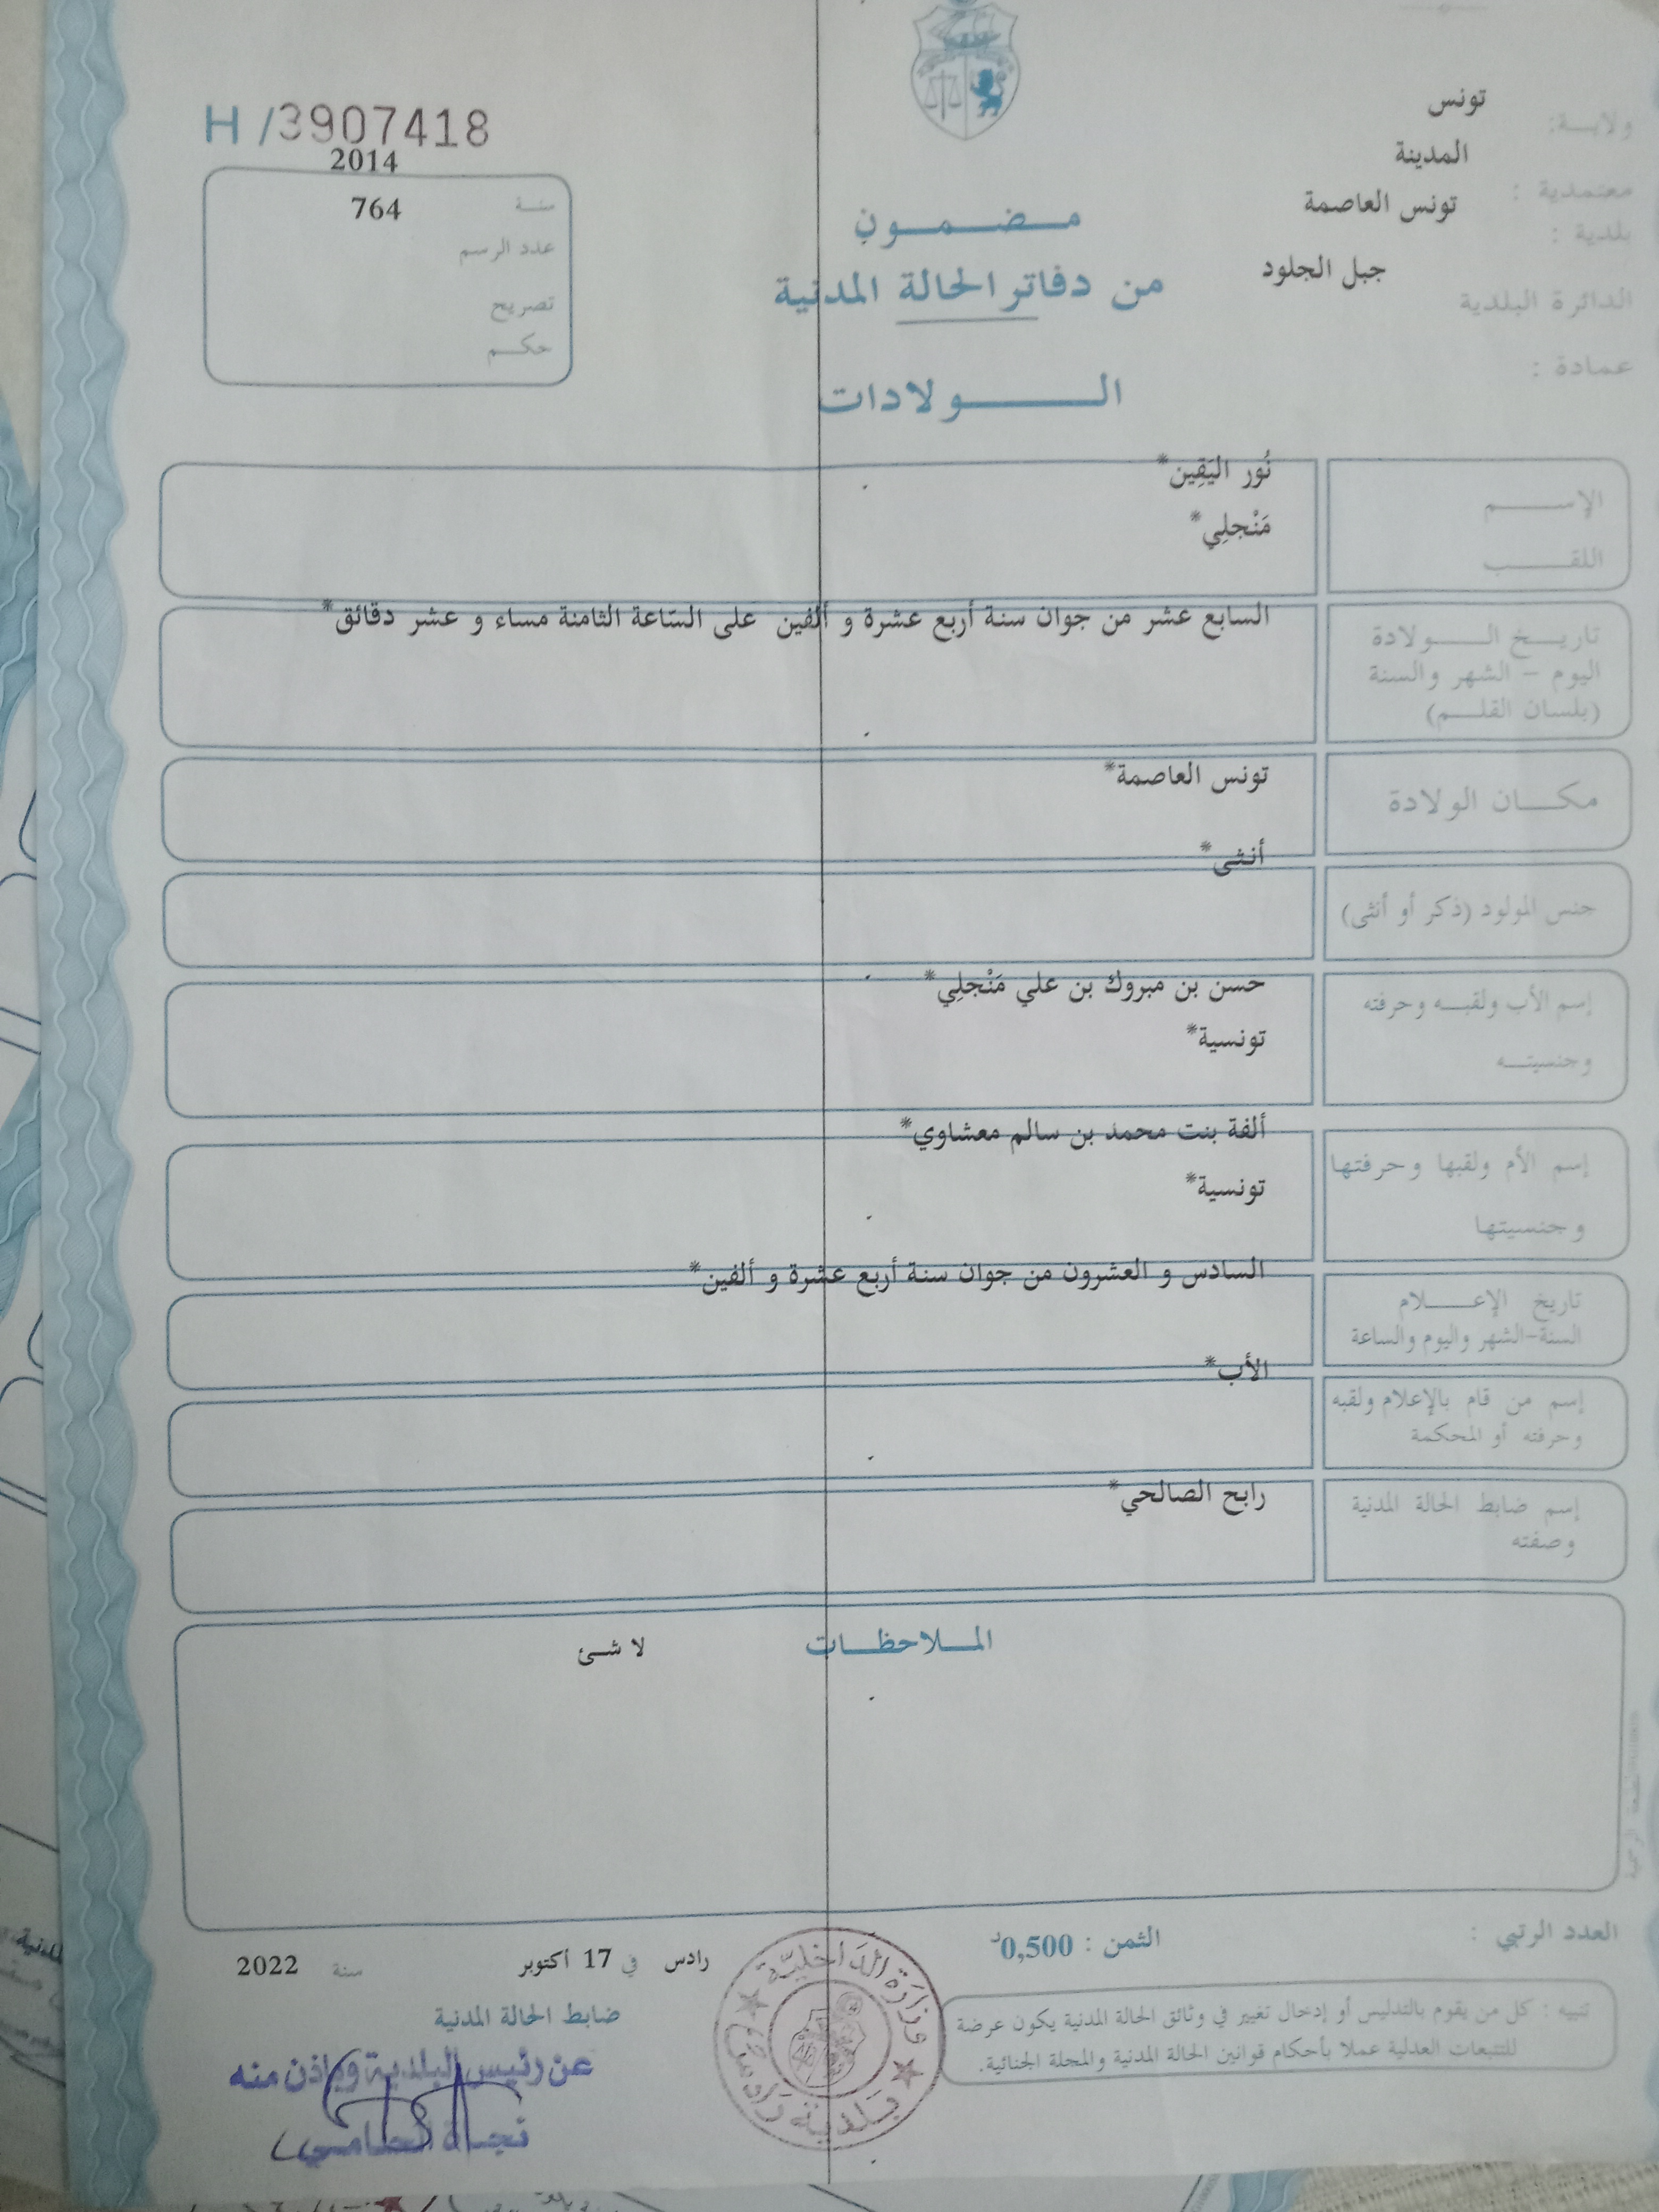 ولايـــة: تونس
معتمدية : المدينة
بلدية : تونس العاصمة
الدائرة البلدية جبل الجلود
عمادة :
H /3907418
2014
سنـة 764
عدد الرسم
تصريح
حكـــم
مـــضـــمـــون
من دفاتر الحالة المدنية
الـــــولادات
الإســـــم نُور اليَقِين*
اللقـــــب مَنْجلِي*
تاريـــخ الـــــولادة السابع عشر من جوان سنة أربع عشرة و ألفين على السّاعة الثامنة مساء و عشر دقائق*
اليوم – الشهر والسنة
(بلسان القلـــم)
مكـــان الولادة تونس العاصمة*
جنس المولود (ذكر أو أنثى) أنثى*
إسم الأب ولقبـــه وحرفته حسن بن مبروك بن علي مَنْجلِي*
وجنسيتـــه تونسية*
إسم الأم ولقبها وحرفتها ألفة بنت محمد بن سالم معشاوي*
وجنسيتها تونسية*
تاريخ الإعـــــلام السادس و العشرون من جوان سنة أربع عشرة و ألفين*
السنة-الشهر واليوم والساعة
إسم من قام بالإعلام ولقبه الأب*
وحرفته أو المحكمة
إسم ضابط الحالة المدنية رابح الصالحي*
وصفته
المـــلاحظـــات لا شئ
العدد الرتبي :
الثمن : 0,500د
رادس في 17 أكتوبر سنة 2022
ضابط الحالة المدنية
عن رئيس البلدية وباذن منه
نجـــاة
وزارة الداخليّة
بلدية رادس
تنبيه : كل من يقوم بالتدليس أو إدخال تغيير في وثائق الحالة المدنية يكون عرضة
للتتبعات العدلية عملا بأحكام قوانين الحالة المدنية والمجلة الجنائية.